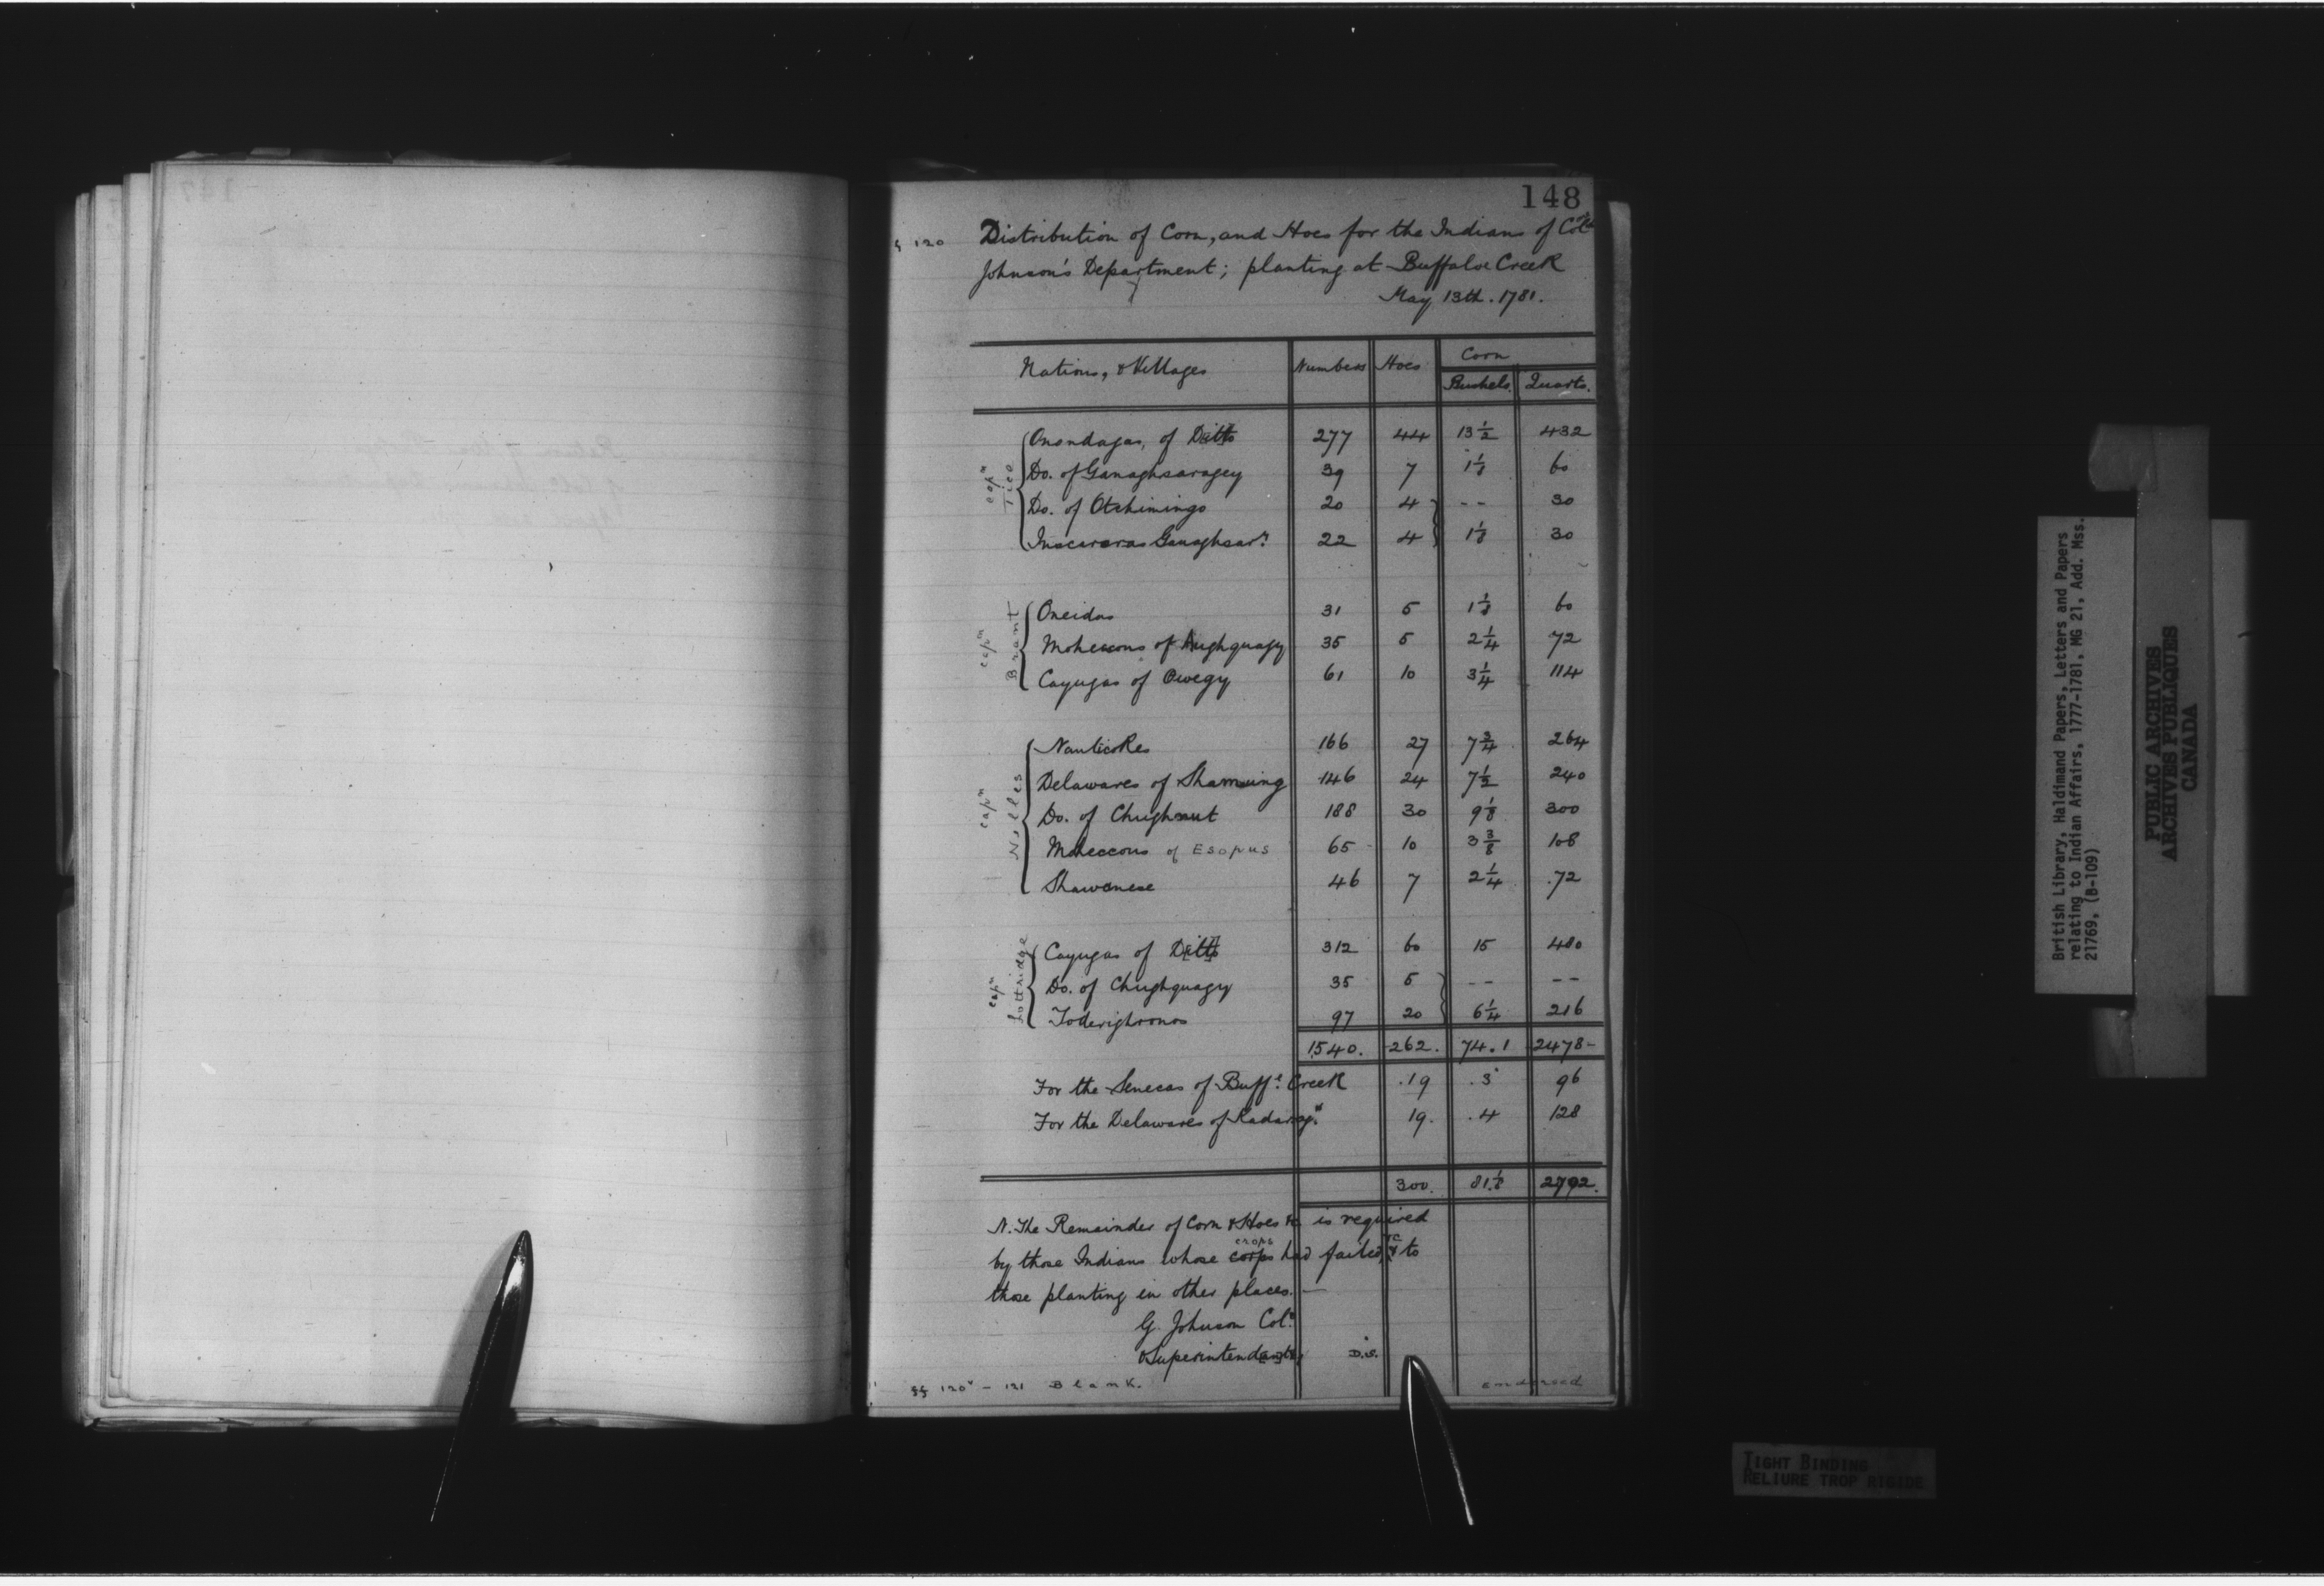 148
f 120 Distribution of Corn, and Hoes for the Indians of Colº
Johnson's Department; planting at Buffaloe Creek
May 13th. 1781.
Nations, & Villages Numbers Hoes Corn
Bushels. Quarts.
Capⁿ Tice
Onondagas, of Ditto 277 44 13 1/2 432
Do. of Ganaghsaragey 39 7 1 1/8 60
Do. of Otshiningo 20 4 -- 30
Tuscaroras Ganaghsarʸ 22 4 1 1/8 30
Capⁿ Brant
Oneidas 31 5 1 1/8 60
Moheccons of Aughquagy 35 5 2 1/4 72
Cayugas of Owegy 61 10 3 1/4 114
Capⁿ Nelles
Nanticokes 166 27 7 3/4 264
Delawares of Shamung 146 24 7 1/2 240
Do. of Chughnut 188 30 9 1/8 300
Moheccons of Esopus 65 10 3 3/8 108
Shawanese 46 7 2 1/4 72
Capⁿ Lottridge
Cayugas of Ditto 312 60 15 480
Do. of Chughquagy 35 5 -- --
Toderighronos 97 20 6 1/4 216
1540. 262. 74.1 2478-
For the Senecas of Buffᵉ Creek 19 3 96
For the Delawares of Kadaragˢ 19. 4 128
300. 81 1/8 2792.
N. The Remainder of Corn & Hoes &c is required
by those Indians whose corps crops had failed, & to
those planting in other places. —
G. Johnson Colº
Superintendent D.S.
ff 120ᵛ - 121 Blank. endorsed
British Library, Haldimand Papers, Letters and Papers
relating to Indian Affairs, 1777-1781, MG 21, Add. Mss.
21769, (B-109)
PUBLIC ARCHIVES
ARCHIVES PUBLIQUES
CANADA
TIGHT BINDING
RELIURE TROP RIGIDE